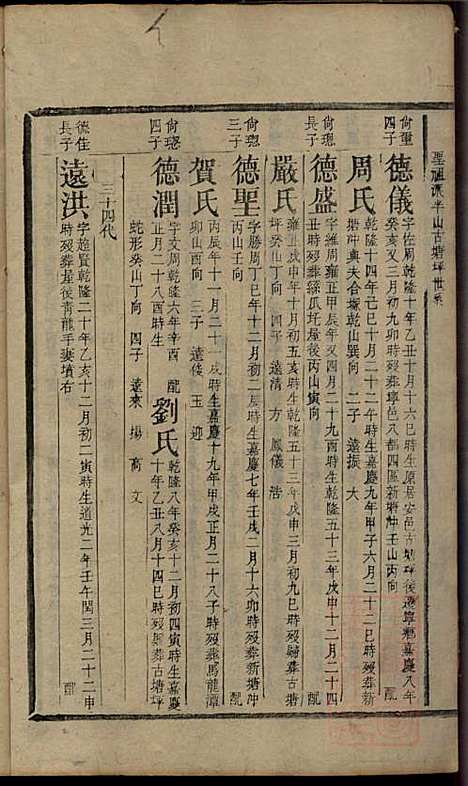 聖祖派半山古塘坪世系
尚重四子
德儀
字佐周乾隆十年乙丑十月十六巳時生原居安邑古塘坪後遷寧鄉嘉慶八年
癸亥又三月初九卯時歿葬寧邑八都四區新塘沖壬山丙向 配
周氏
乾隆十四年己巳十月二十二午時生嘉慶九年甲子六月二十二巳時歿葬新
塘沖與夫合塚乾山巽向 二子 遠振 大
尚璁長子
德盛
字維周雍正甲辰年又四月二十九酉時生乾隆五十三年戊申十二月二十四
丑時歿葬絲瓜圫屋後丙山寅向 配
嚴氏
雍正戊申年十月初五亥時生乾隆五十三年戊申三月初九巳時歿歸葬古塘
坪癸山丁向 四子 遠清 方 鳳儀 浩
尚璁三子
德聖
字勝周丁巳年十二月初二時生嘉慶七年壬戌二月十六卯時歿葬新塘沖
丙山壬向 配
賀氏
丙辰年十一月二十一戌時生嘉慶十九年甲戌正月二十八子時歿葬馬龍潭
卯山酉向 三子 遠俊 玉 迎
尚璁四子
德潤
字文周乾隆六年辛酉
正月二十八酉時生 配
劉氏
乾隆八年癸亥十二月初四寅時生嘉慶
十年乙丑八月十四巳時歿葬古塘坪
蛇形癸山丁向 四子 遠來 揚 商 文
三十四代
德佳長子
遠洪
字超賢乾隆二十年乙亥十二月初二寅時生道光二年壬午閏三月二十二申
時歿葬屋後青龍手妻墳右 配